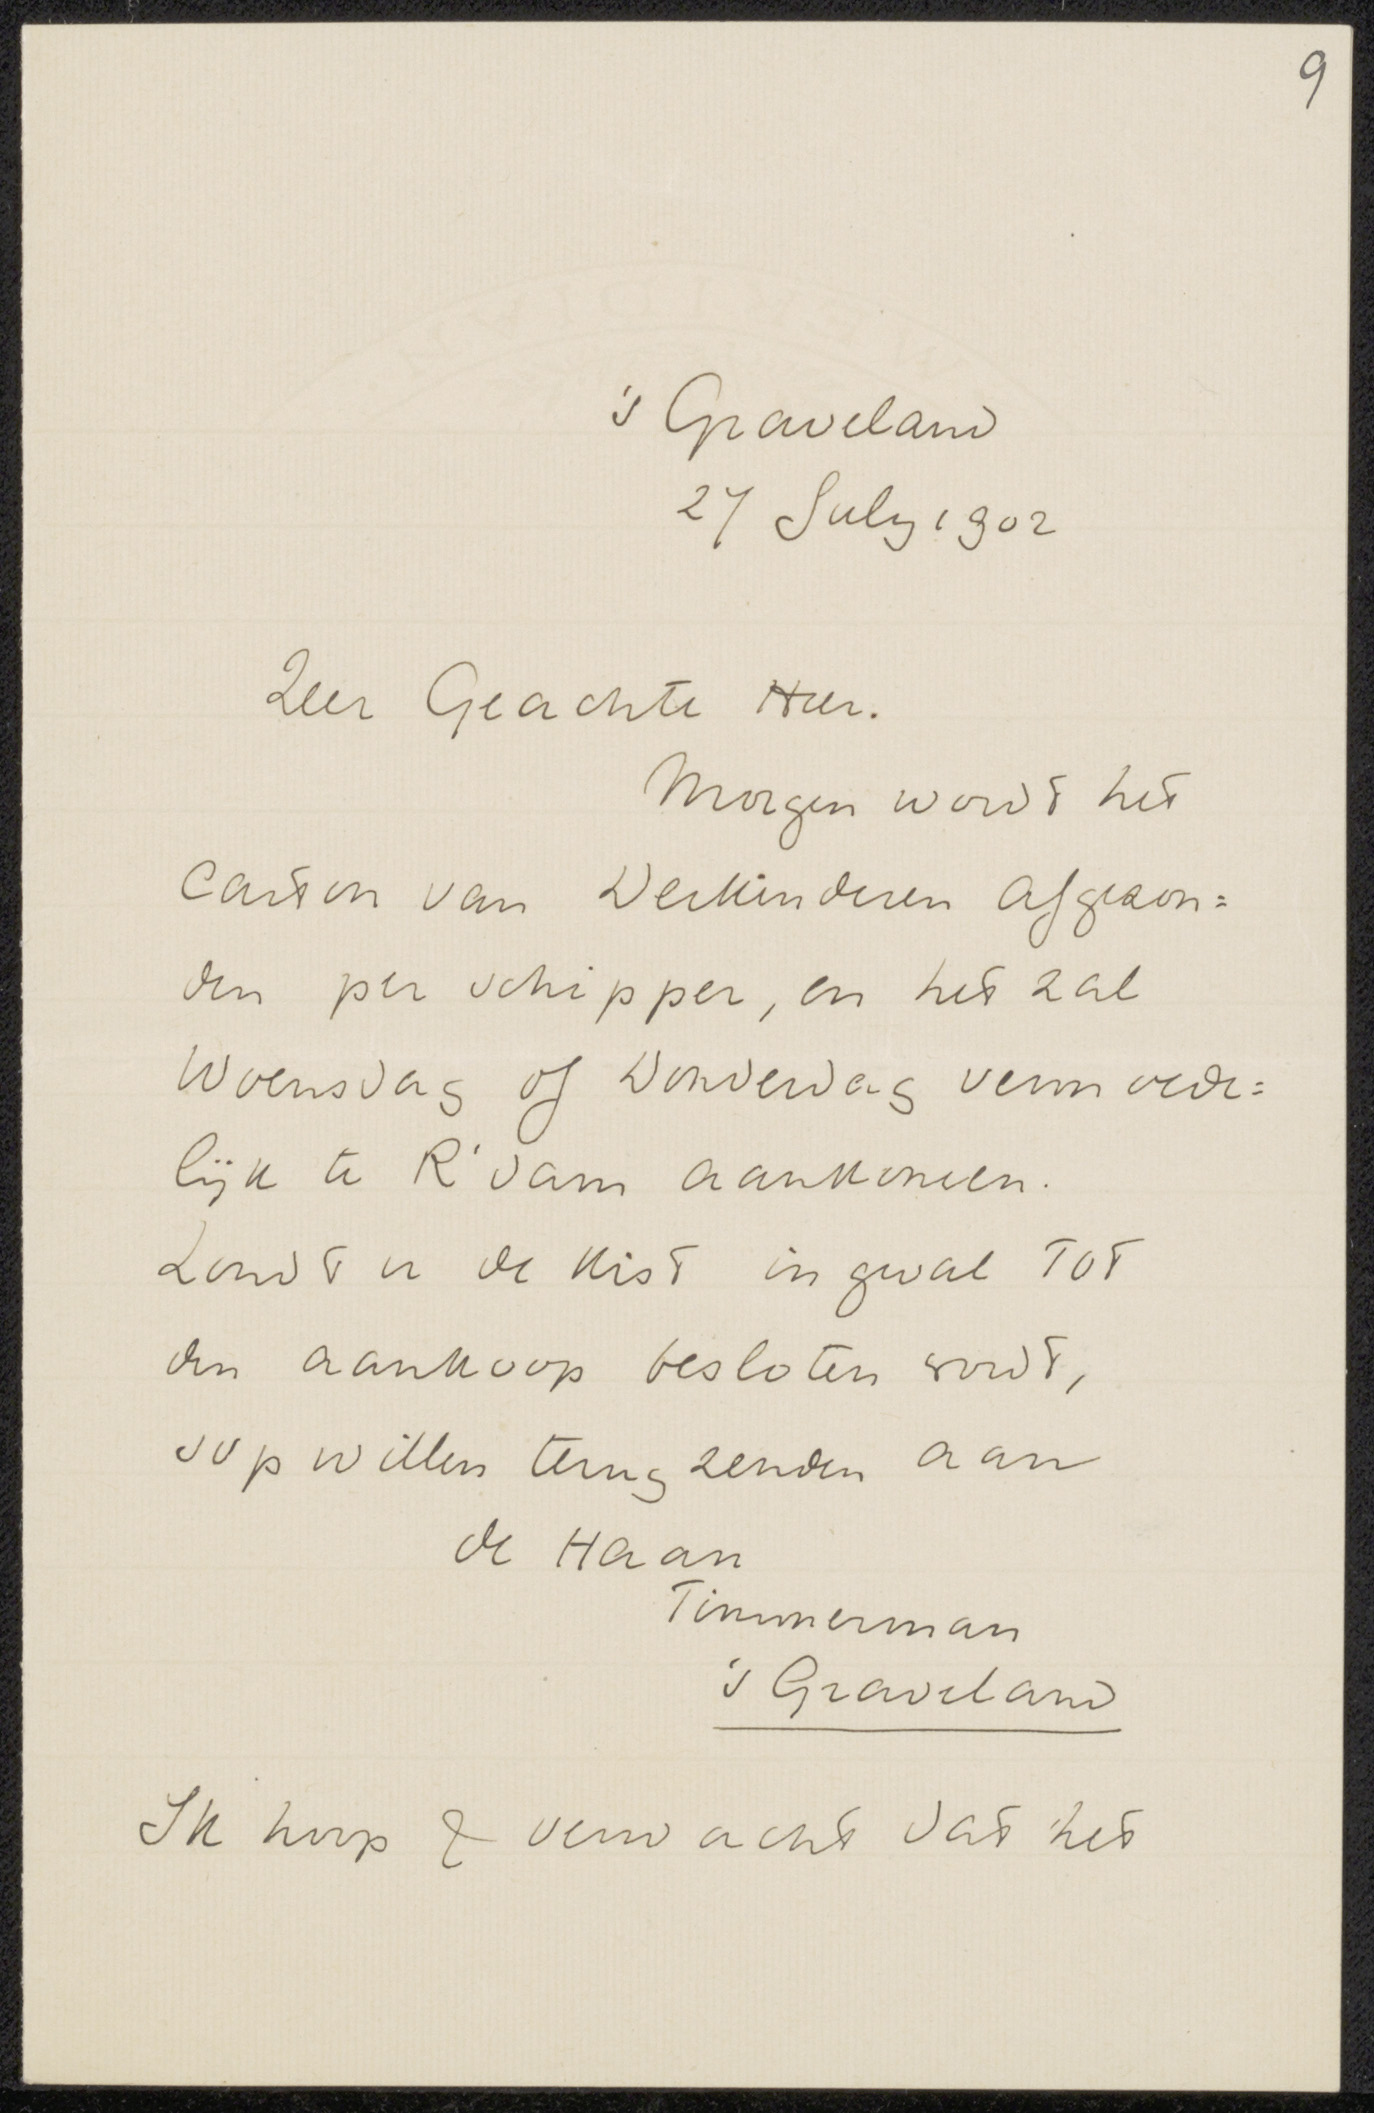 9
's Graveland
27 July 1902
Zeer Geachte Heer.
Morgen wordt het
Carton van Derkinderen afgezon=
den per schipper, en het zal
Woensdag of Donderdag vermoede=
lijk te R'dam aankomen.
Zoudt u de kist ingeval tot
den aankoop besloten wordt,
svp willen terugzenden aan
de Haan
Timmerman
's Graveland
Ik hoop & verwacht dat het